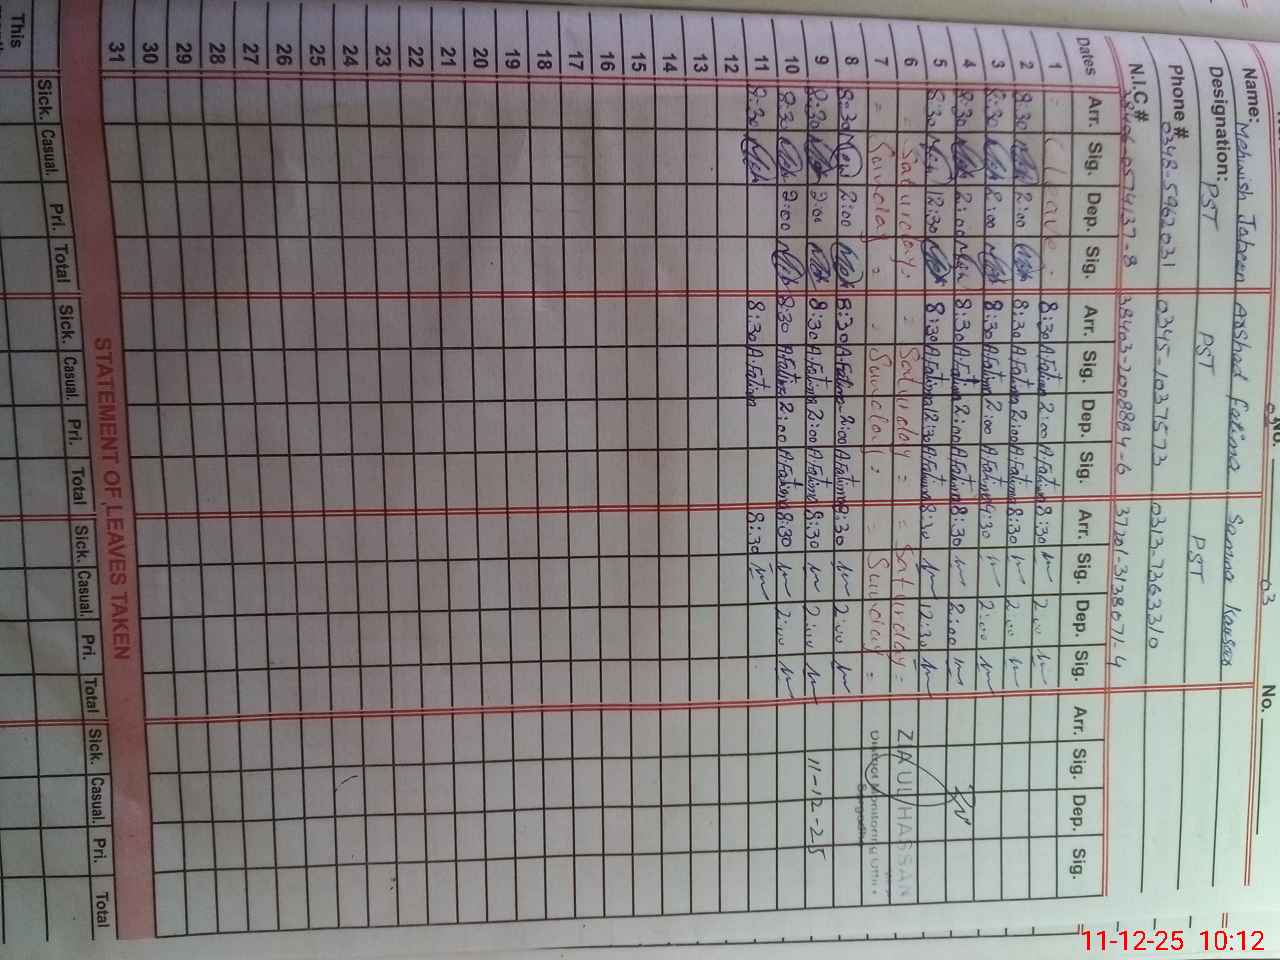 No. 03 No.
Name: Mehwish Jabeen Arshad Fatima Samina Kausar
Designation: PST PST PST
Phone # 0348-5962031 0345-1037573 0313-7363310
N.I.C.# 38406-0574137-8 38403-2008884-6 37201-3138071-4
Dates Arr. Sig. Dep. Sig. Arr. Sig. Dep. Sig. Arr. Sig. Dep. Sig. Arr. Sig. Dep. Sig.
1 Leave 8:30 A.Fatima 2:00 A.Fatima 8:30 2:00
2 8:30 2:00 8:30 A.Fatima 2:00 A.Fatima 8:30 2:00
3 8:30 2:00 8:30 A.Fatima 2:00 A.Fatima 8:30 2:00
4 8:30 2:00 8:30 A.Fatima 2:00 A.Fatima 8:30 2:00
5 8:30 12:30 8:30 A.Fatima 12:30 A.Fatima 8:30 12:30
6 = Saturday = = Saturday = = Saturday = ZIA UL HASSAN
7 = Sunday = = Sunday = = Sunday =
8 8:30 2:00 8:30 A.Fatima 2:00 A.Fatima 8:30 2:00
9 8:30 2:00 8:30 A.Fatima 2:00 A.Fatima 8:30 2:00 11-12-25
10 8:30 2:00 8:30 A.Fatima 2:00 A.Fatima 8:30 2:00
11 8:30 8:30 A.Fatima 8:30
12
13
14
15
16
17
18
19
20
21
22
23
24
25
26
27
28
29
30
31
STATEMENT OF LEAVES TAKEN
Sick. Casual. Pri. Total Sick. Casual. Pri. Total Sick. Casual. Pri. Total Sick. Casual. Pri. Total
This
11-12-25 10:12